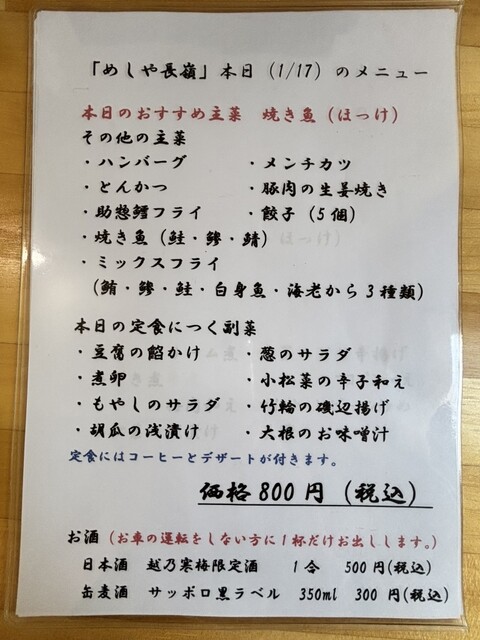 「めしや長嶺」本日(1/17)のメニュー
本日のおすすめ主菜 焼き魚(ほっけ)
その他の主菜
・ハンバーグ ・メンチカツ
・とんかつ ・豚肉の生姜焼き
・助惣鱈フライ ・餃子(5個)
・焼き魚(鮭・鯵・鯖)
・ミックスフライ
(鮪・鯵・鮭・白身魚・海老から3種類)
本日の定食につく副菜
・豆腐の餡かけ ・葱のサラダ
・煮卵 ・小松菜の辛子和え
・もやしのサラダ ・竹輪の磯辺揚げ
・胡瓜の浅漬け ・大根のお味噌汁
定食にはコーヒーとデザートが付きます。
価格800円(税込)
お酒(お車の運転をしない方に1杯だけお出しします。)
日本酒 越乃寒梅限定酒 1合 500円(税込)
缶麦酒 サッポロ黒ラベル 350ml 300円(税込)